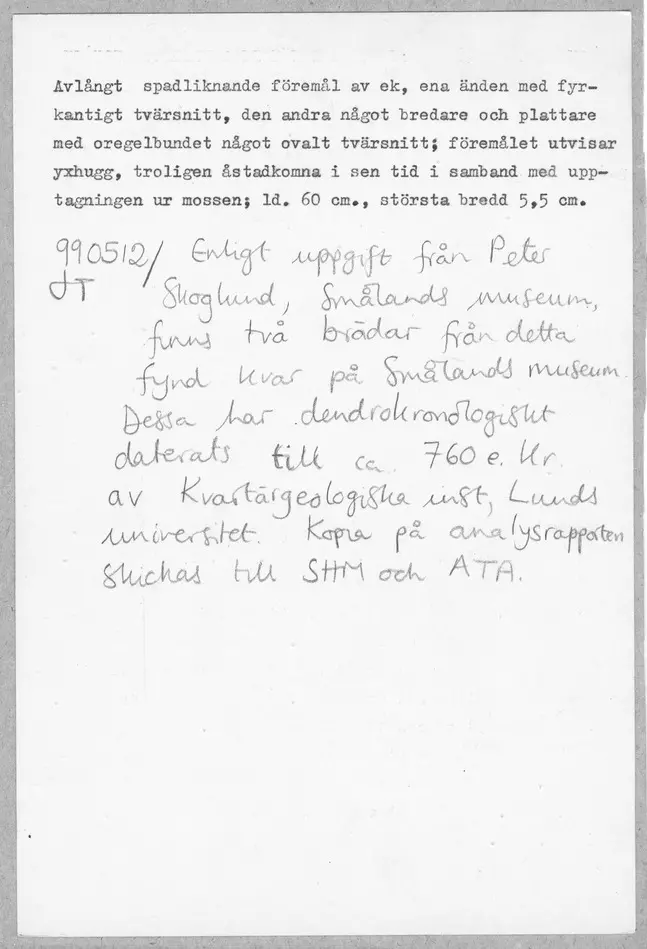 Avlångt spadliknande föremål av ek, ena änden med fyr-
kantigt tvärsnitt, den andra något bredare och plattare
med oregelbundet något ovalt tvärsnitt; föremålet utvisar
yxhugg, troligen åstadkomna i sen tid i samband med upp-
tagningen ur mossen; ld. 60 cm., största bredd 5,5 cm.
990512/ Enligt uppgift från Peter
JT Skoglund, Smålands museum,
finns två brädar från detta
fynd kvar på Smålands museum.
Dessa har dendrokronologiskt
daterats till ca. 760 e. Kr.
av Kvartärgeologiska inst, Lunds
universitet. Kopia på analysrapporten
skickas till SHM och ATA.